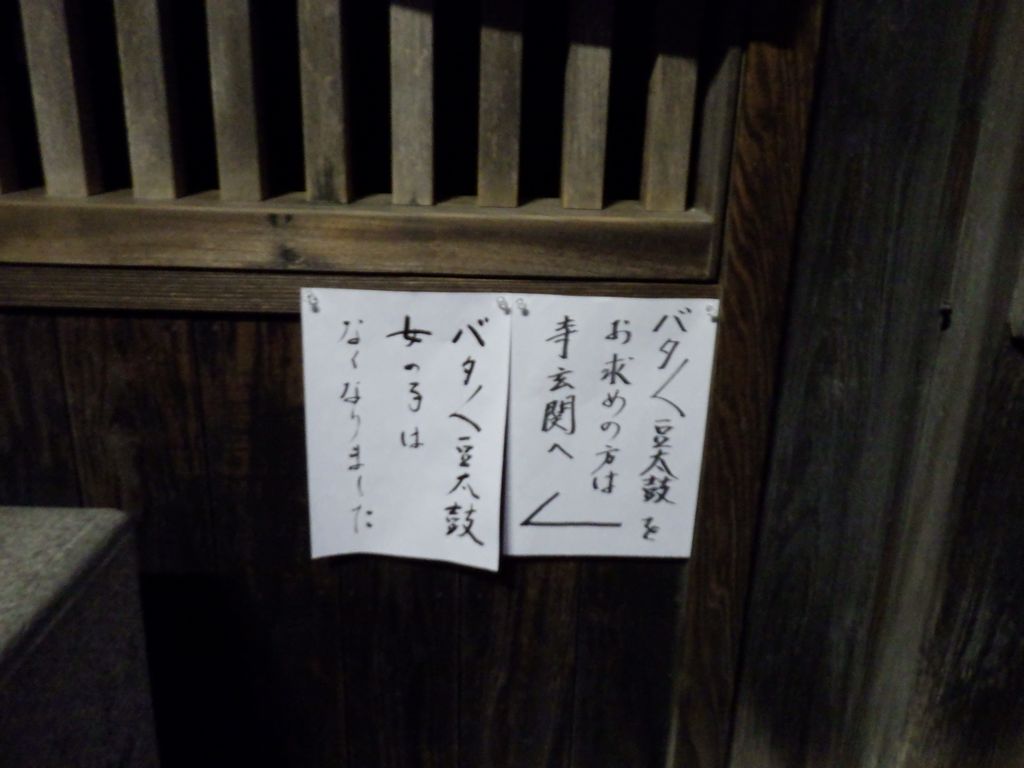 バタ〳〵豆太鼓を
お求めの方は
寺玄関へ
バタ〳〵豆太鼓
女の子は
なくなりました